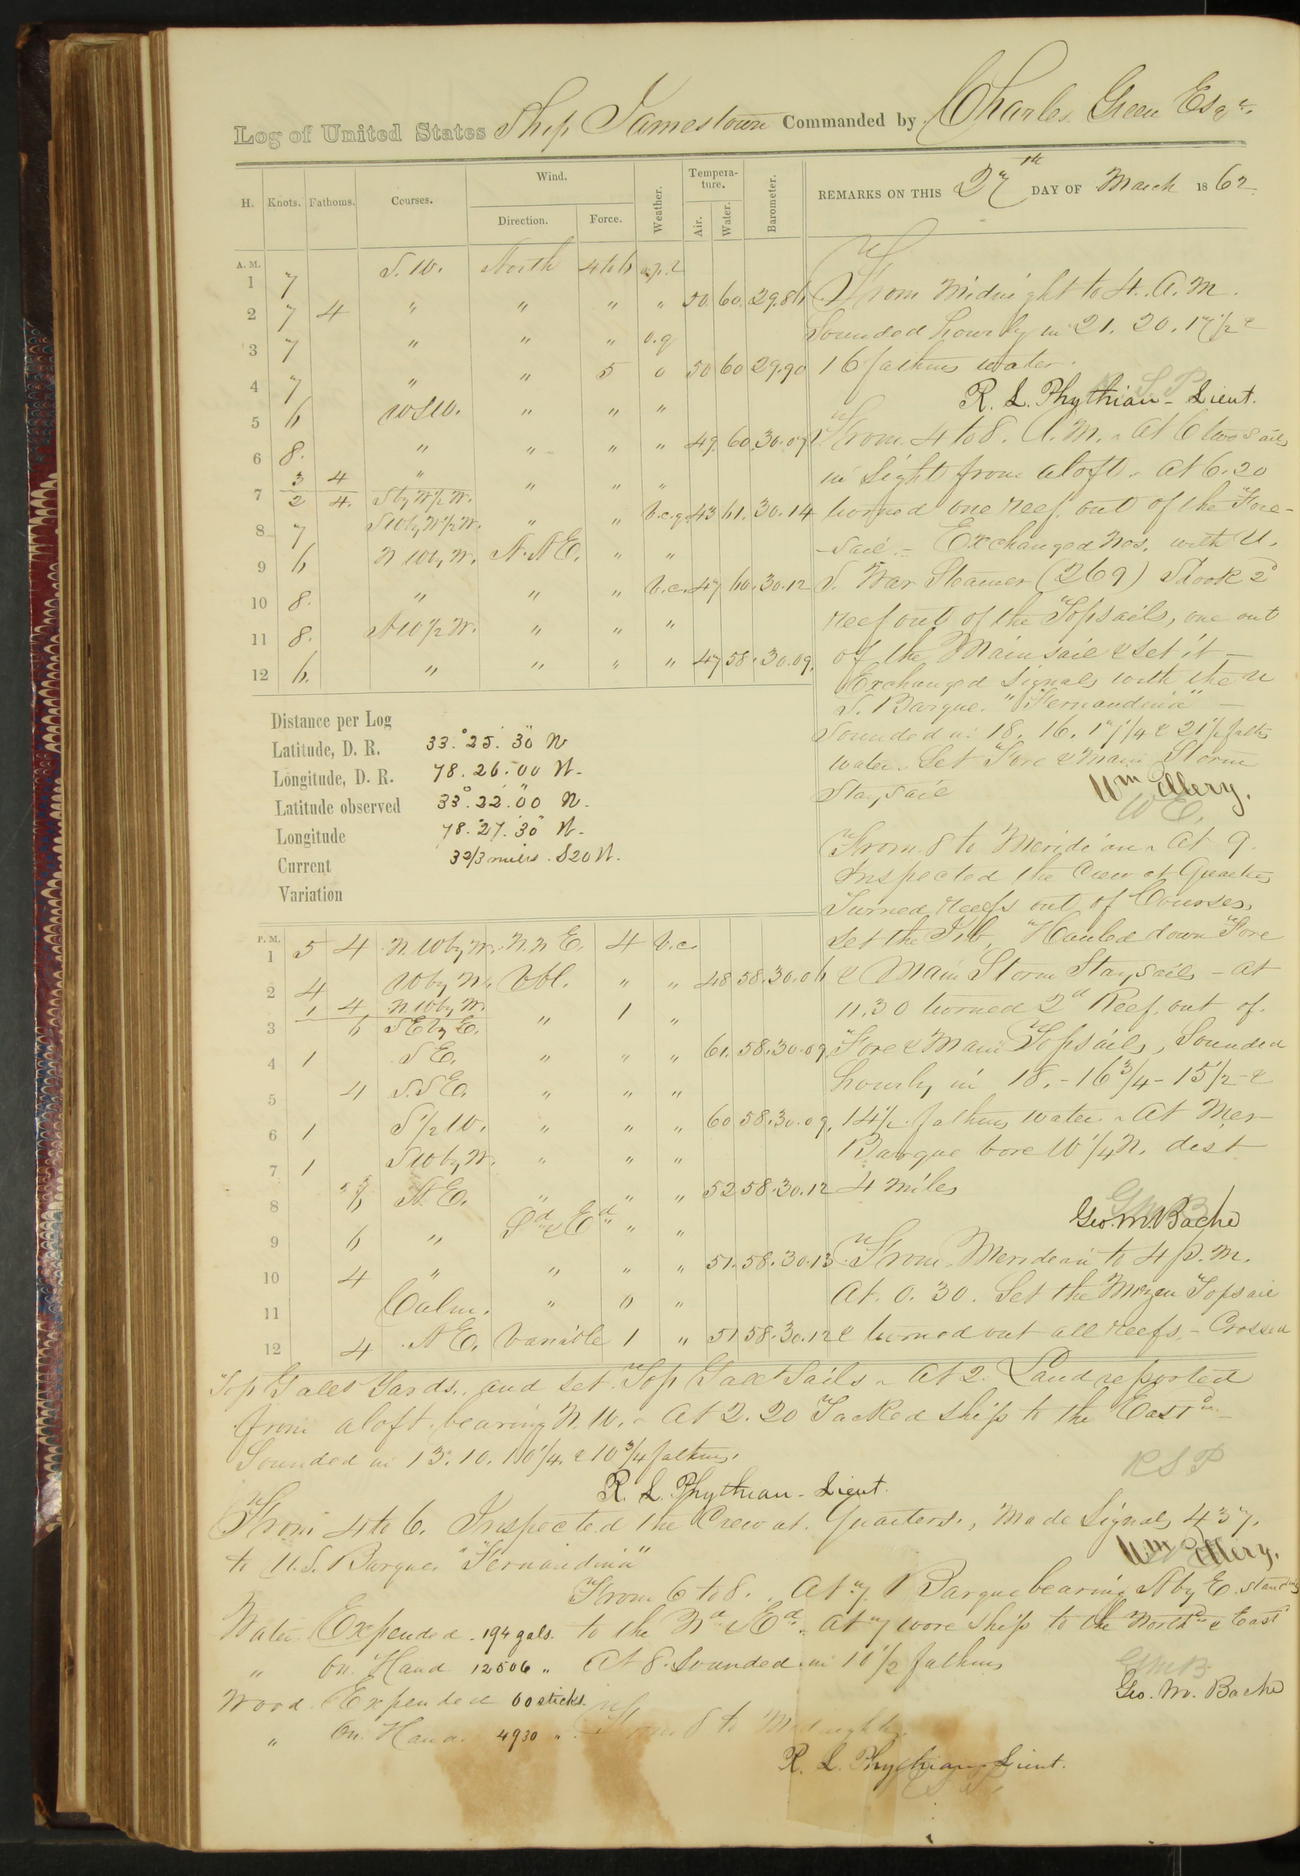 Log of United States Ship Jamestown Commanded by Charles Green Esqr.
REMARKS ON THIS 27th DAY OF March 1862
H. Knots. Fathoms. Courses. Wind. Direction. Force. Weather. Tempera-ture. Air. Water. Barometer.
A. M.
1 7 S. W. North 4 to 6 o.p.q
2 7 4 " " " " 50 60 29.86
3 7 " " " o.q
4 7 " " 5 o 50 60 29.90
5 6 WSW. " " "
6 8. " " " " 49. 60. 30.07
7 3 4 " " " "
2 4. S by W 1/2 W.
8 7 SW by W 1/2 W. " " b.c.q. 43 61. 30.14
9 6 N W by W. N. NE. " "
10 8. " " " b.c. 47 60. 30.12
11 8. NW 1/2 W. " " "
12 6. " " " " 47 58. 30.09.
From Midnight to 4. A. M.
Sounded hourly in 21. 20. 17 1/2 &
16 fathms water.
R. L. Phythian - Lieut.
From 4 to 8. A. M. At 6 two sails
in sight from aloft. At 6.20
turned one reef out of the Fore-
sail. - Exchanged Nos. with U.
S. War Steamer (269) Shook 2d
reef out of the Topsails, one out
of the Mainsail & set it -
Exchanged signals with the U
S. Barque. "Fernandina" -
Sounded in 18. 16. 17 1/4 & 21 1/2 faths
water. Set Fore & Main Storm
Staysail
Wm Ellery.
W E.
Distance per Log
Latitude, D. R. 33.° 25'. 30" N
Longitude, D. R. 78. 26. 00 W.
Latitude observed 33.° 22'. 00" N.
Longitude 78. 27. 30 W.
Current 3 2/3 miles. S 20 W.
Variation
From 8 to Meridian. At 9.
Inspected the Crew at Quarters
Turned Reefs out of Courses,
Set the Jib, Hauled down Fore
& Main Storm Staysails - At
11.30 turned 2d Reef out of
Fore & Main Topsails, Sounded
hourly in 18. - 16 3/4 - 15 1/2 - &
14 1/2 fathms water. At Mer-
Barque bore W 1/4 N. dist
4 miles
G M B
Geo. M. Bache
P. M.
1 5 4 N. W by W. N. N E. 4 b.c.
2 4 W by N. Vbl. " " 48 58. 30.06
3 1 4 N W by W. " 1 "
6 SE by E.
4 1 SE. " " " 61. 58. 30.09
5 4 S.SE. " " "
6 1 S 1/2 W. " " " 60 58. 30.09.
7 1 SW by W. " " "
8 6 N. E. " " " 52 58. 30.12
9 6 " Sd & Ed " "
10 4 " " " " 51. 58. 30.13
11 Calm. " 0 "
12 4 N E. Variable 1 " 51 58. 30.12
From Meridean to 4 p. M.
At. 0. 30. Set the Mizen Topsail
& turned out all reefs - Crossed
Top Gallt Yards, and set Top Gallt Sails. At 2. Land reported
from aloft bearing N. W. At 2. 20 Tacked ship to the Eastd
Sounded in 13. 10. 10 1/4. & 10 3/4 fathms.
R S P
R. L. Phythian - Lieut.
From 4 to 6. Inspected the Crew at Quarters, Made Signals 437.
to U. S. Barque. "Fernandina"
Wm Ellery.
From 6 to 8. At 7. Barque bearing N by E. standing
Water Expended 194 gals. to the Nd & Ed. At 7 wore ship to the Northd & Eastd
" On Hand 12506 " At 8. Sounded in 10 1/2 fathms
G M B
Wood Expended 60 sticks.
Geo. M. Bache
" On Hand 4930 " From 8 to Midnight
R. L. Phythian - Lieut.